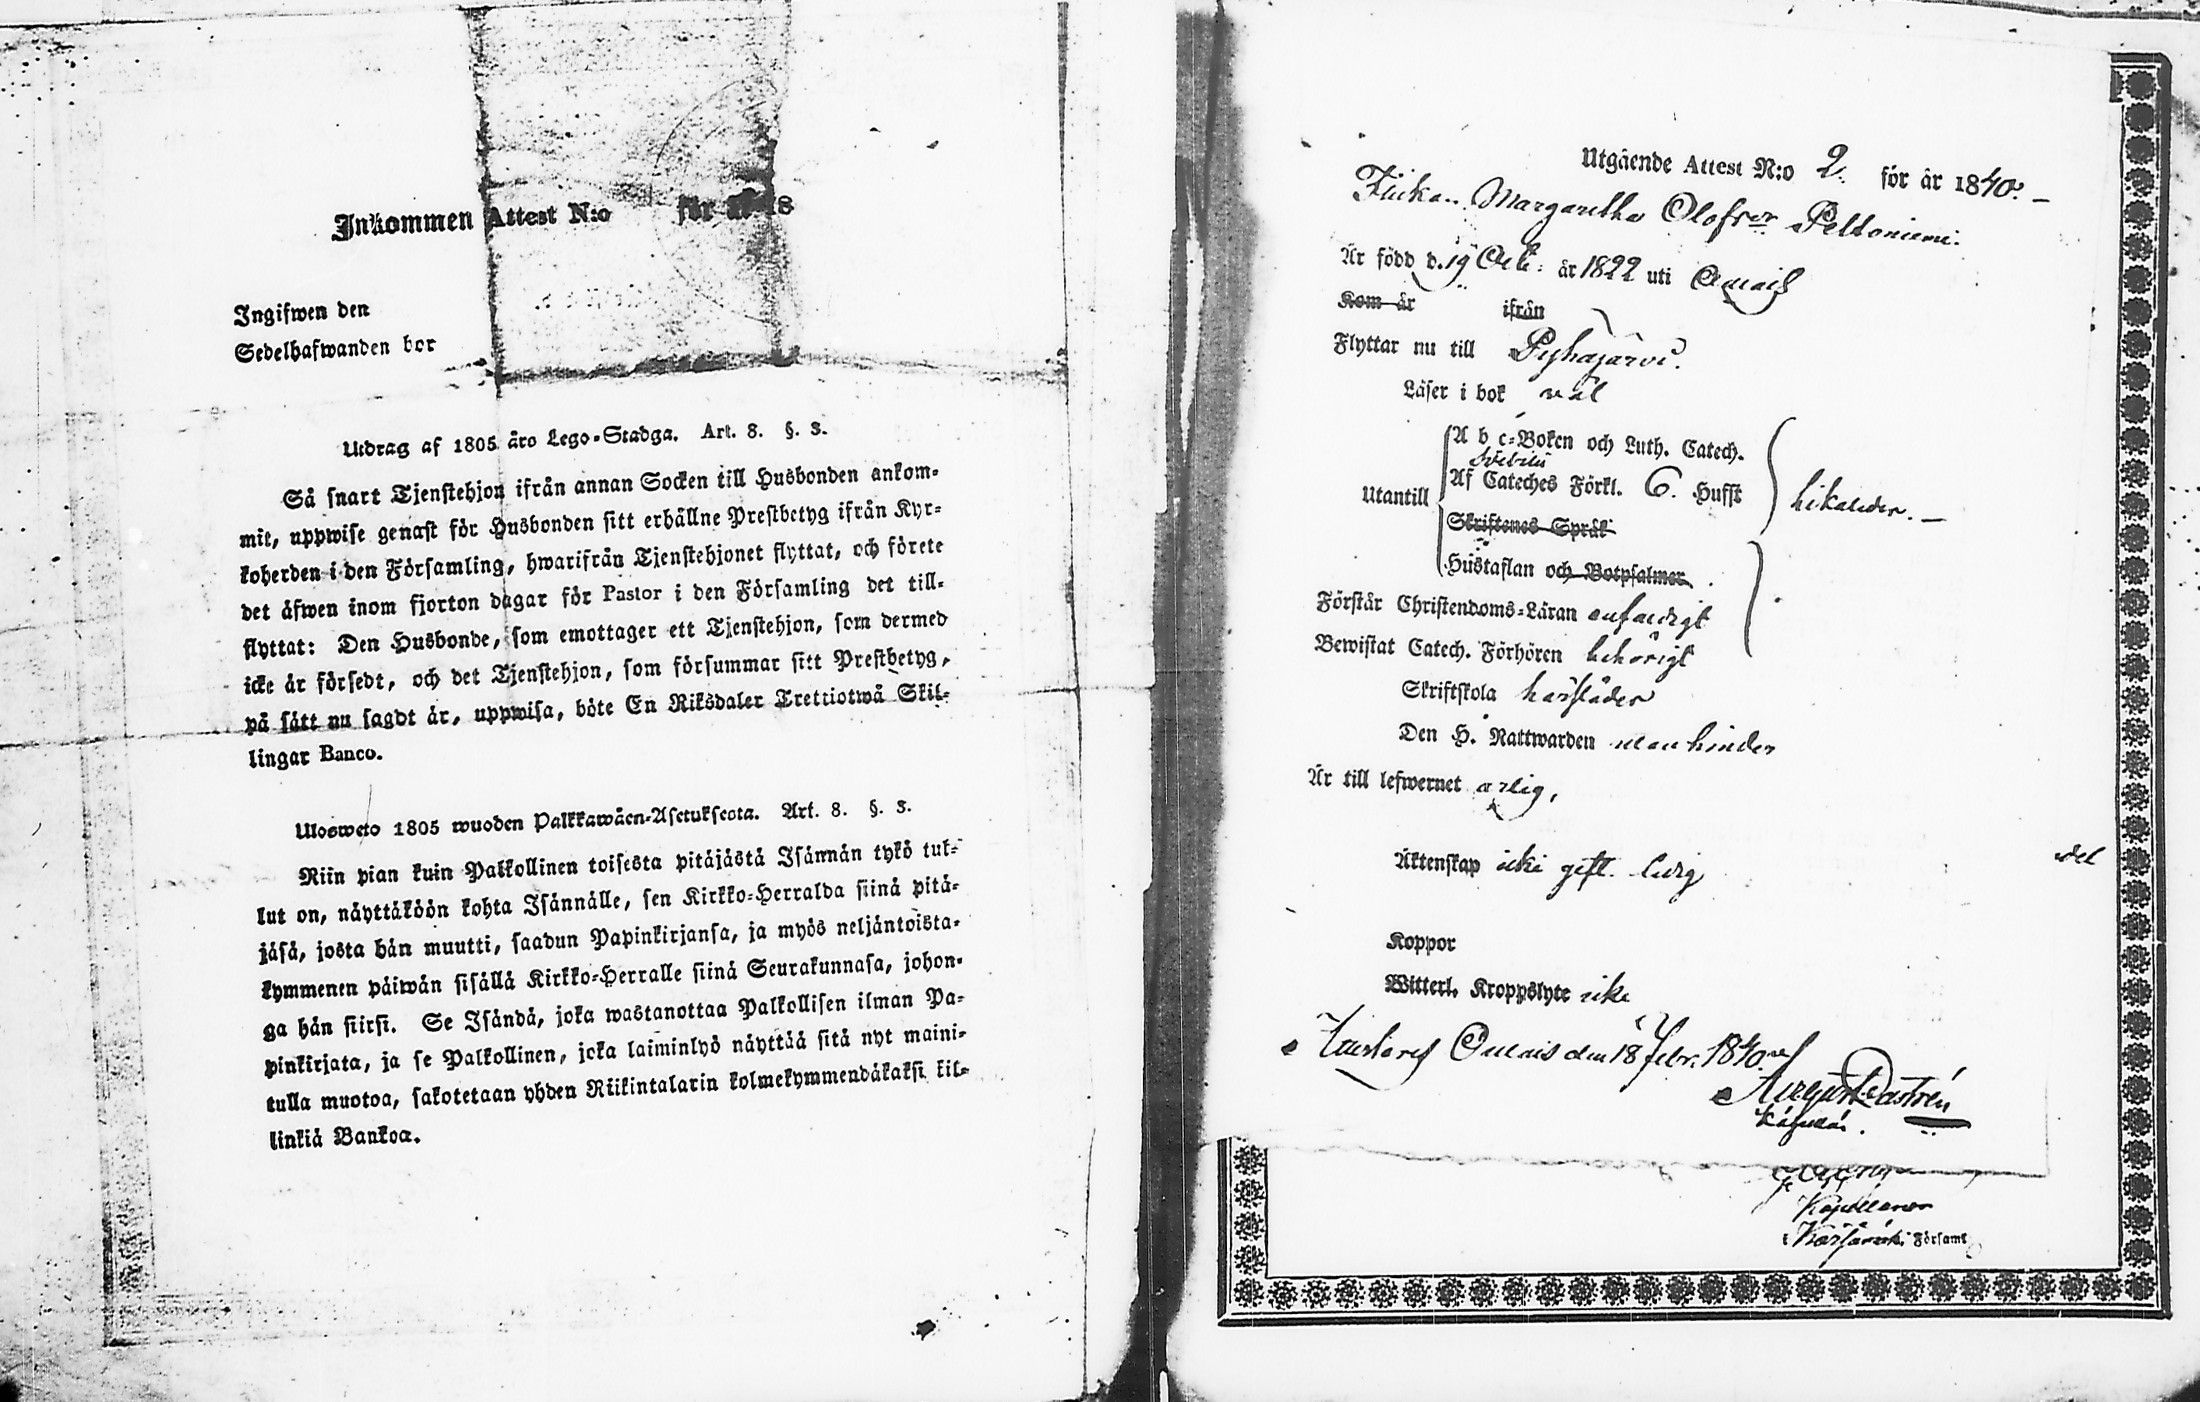 Inkommen Attest N:o för år 18
Ingifwen den
Sedelhafwanden bor
Utdrag af 1805 åro Lego-Stadga. Art. 8. §. 3.
Så snart Tjenstehjon ifrån annan Socken till Husbonden ankom-
mit, uppwise genast för Husbonden sitt erhållne Prestbetyg ifrån Kyr-
koherden i den Församling, hwarifrån Tjenstehjonet flyttat, och förete
det äfwen inom fjorton dagar för Pastor i den Församling det till-
flyttat: Den Husbonde, som emottager ett Tjenstehjon, som dermed
icke är försedt, och det Tjenstehjon, som försummar sitt Prestbetyg,
på sätt nu sagdt är, uppwisa, böte En Riksdaler Trettiotwå Skil-
lingar Banco.
Ulosweto 1805 wuoden Palkkawäen-Asetuksesta. Art. 8. §. 3.
Niin pian kuin Palkollinen toisesta pitäjästä Isännän tykö tul-
lut on, näyttäköön kohta Isännälle, sen Kirkko-Herralda siinä pitä-
jäsä, josta hän muutti, saadun Papinkirjansa, ja myös neljäntoista-
kymmenen päiwän sisällä Kirkko-Herralle siinä Seurakunnasa, johon-
ga hän siirsi. Se Isändä, joka wastanottaa Palkollisen ilman Pa-
pinkirjata, ja se Palkollinen, joka laiminlyö näyttää sitä nyt maini-
tulla muotoa, sakotetaan yhden Riikintalarin kolmekymmendäkaksi kil-
linkiä Bankoa.
Utgående Attest N:o 2. för år 1840. –
Margaretha Olofsdr Peltoniemi.
Är född d. 19 Oct: år 1822 uti
Kom år ifrån
Flyttar nu till Pyhäjärvi.
Läser i bok väl
A b c-Boken och Luth. Catech.
Svebilii
Utantill Af Cateches Förkl. 6. Hufst
Skriftenes Språk
Hustaflan och Botpsalmer
Förstår Christendoms-Läran enfaldigt
Bewistat Catech. Förhören behörigt
Skriftskola härstädes
Den H. Nattwarden utan hinder
Är till lefwernet ärlig,
Äktenskap icke gift. ledig
del
Koppor
Witterl. Kroppslyte icke
den 18 Febr. 1840.
August Castrén
Kapellanen
i Kärsämäki Församl